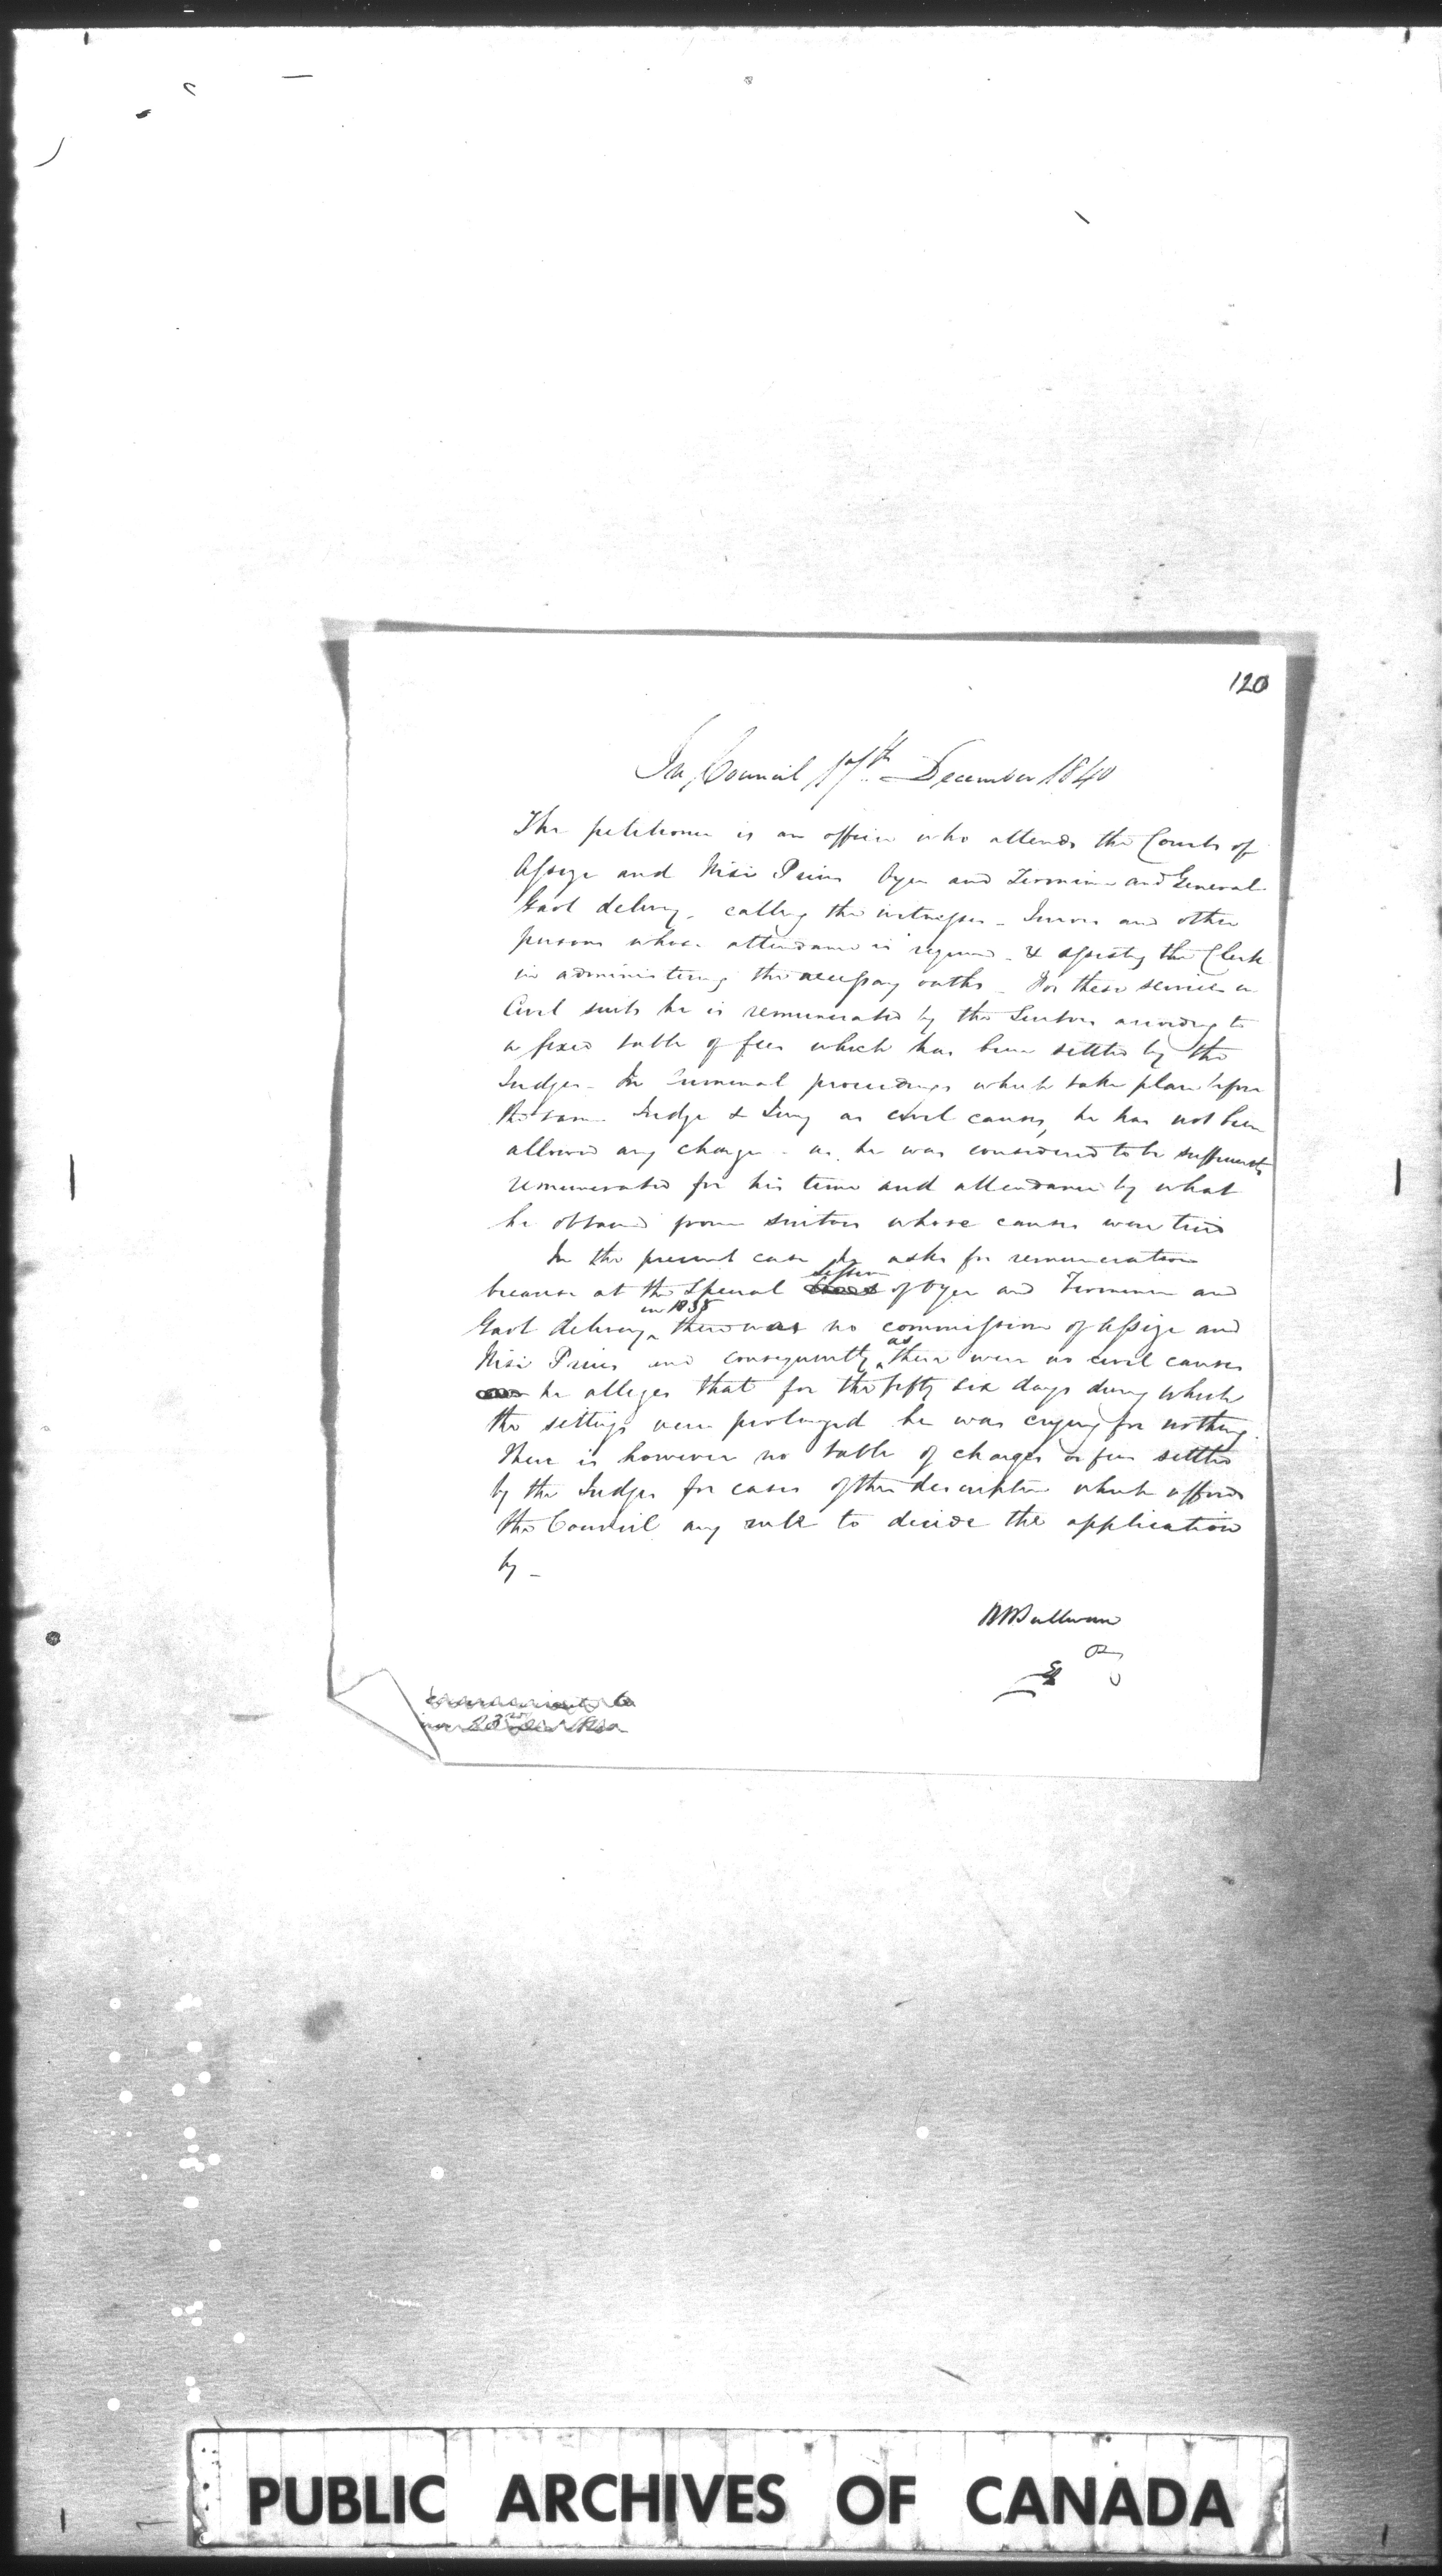 120
In Council 17th December 1840
The petitioner is an officer who attends the Courts of
Assize and Nisi Prius Oyer and Terminer and General
Gaol delivery - calling the witnesses - Jurors and other
persons whose attendance is required - & assisting the Clerk
in administering the necessary oaths - For these services in
Civil suits he is remunerated by the Suitors according to
a fixed table of fees which has been settled by the
Judges - In Criminal proceedings which take place before
the same Judge & Jury as civil causes, he has not been
allowed any charge - as he was considered to be sufficiently
remunerated for his time and attendance by what
he obtained from suitors whose causes were tried
In the present case he asks for remuneration
because at the Special Session of Oyer and Terminer and
Gaol delivery in 1838 there was no commission of Assize and
Nisi Prius and consequently as there were no civil causes
he alleges that for the fifty six days during which
the sittings were prolonged he was crying for nothing.
There is however no table of charges or fees settled
by the Judges for cases of this description which affords
the Council any rule to decide the application
by -
RBSullivan
PUBLIC ARCHIVES OF CANADA